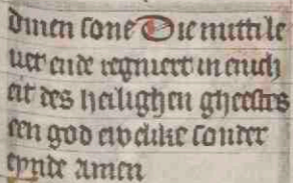 dinen sone Die mit ti le
uet ende regniert in enich
eit des heilighen gheestes
een god ewelike sonder
eynde amen